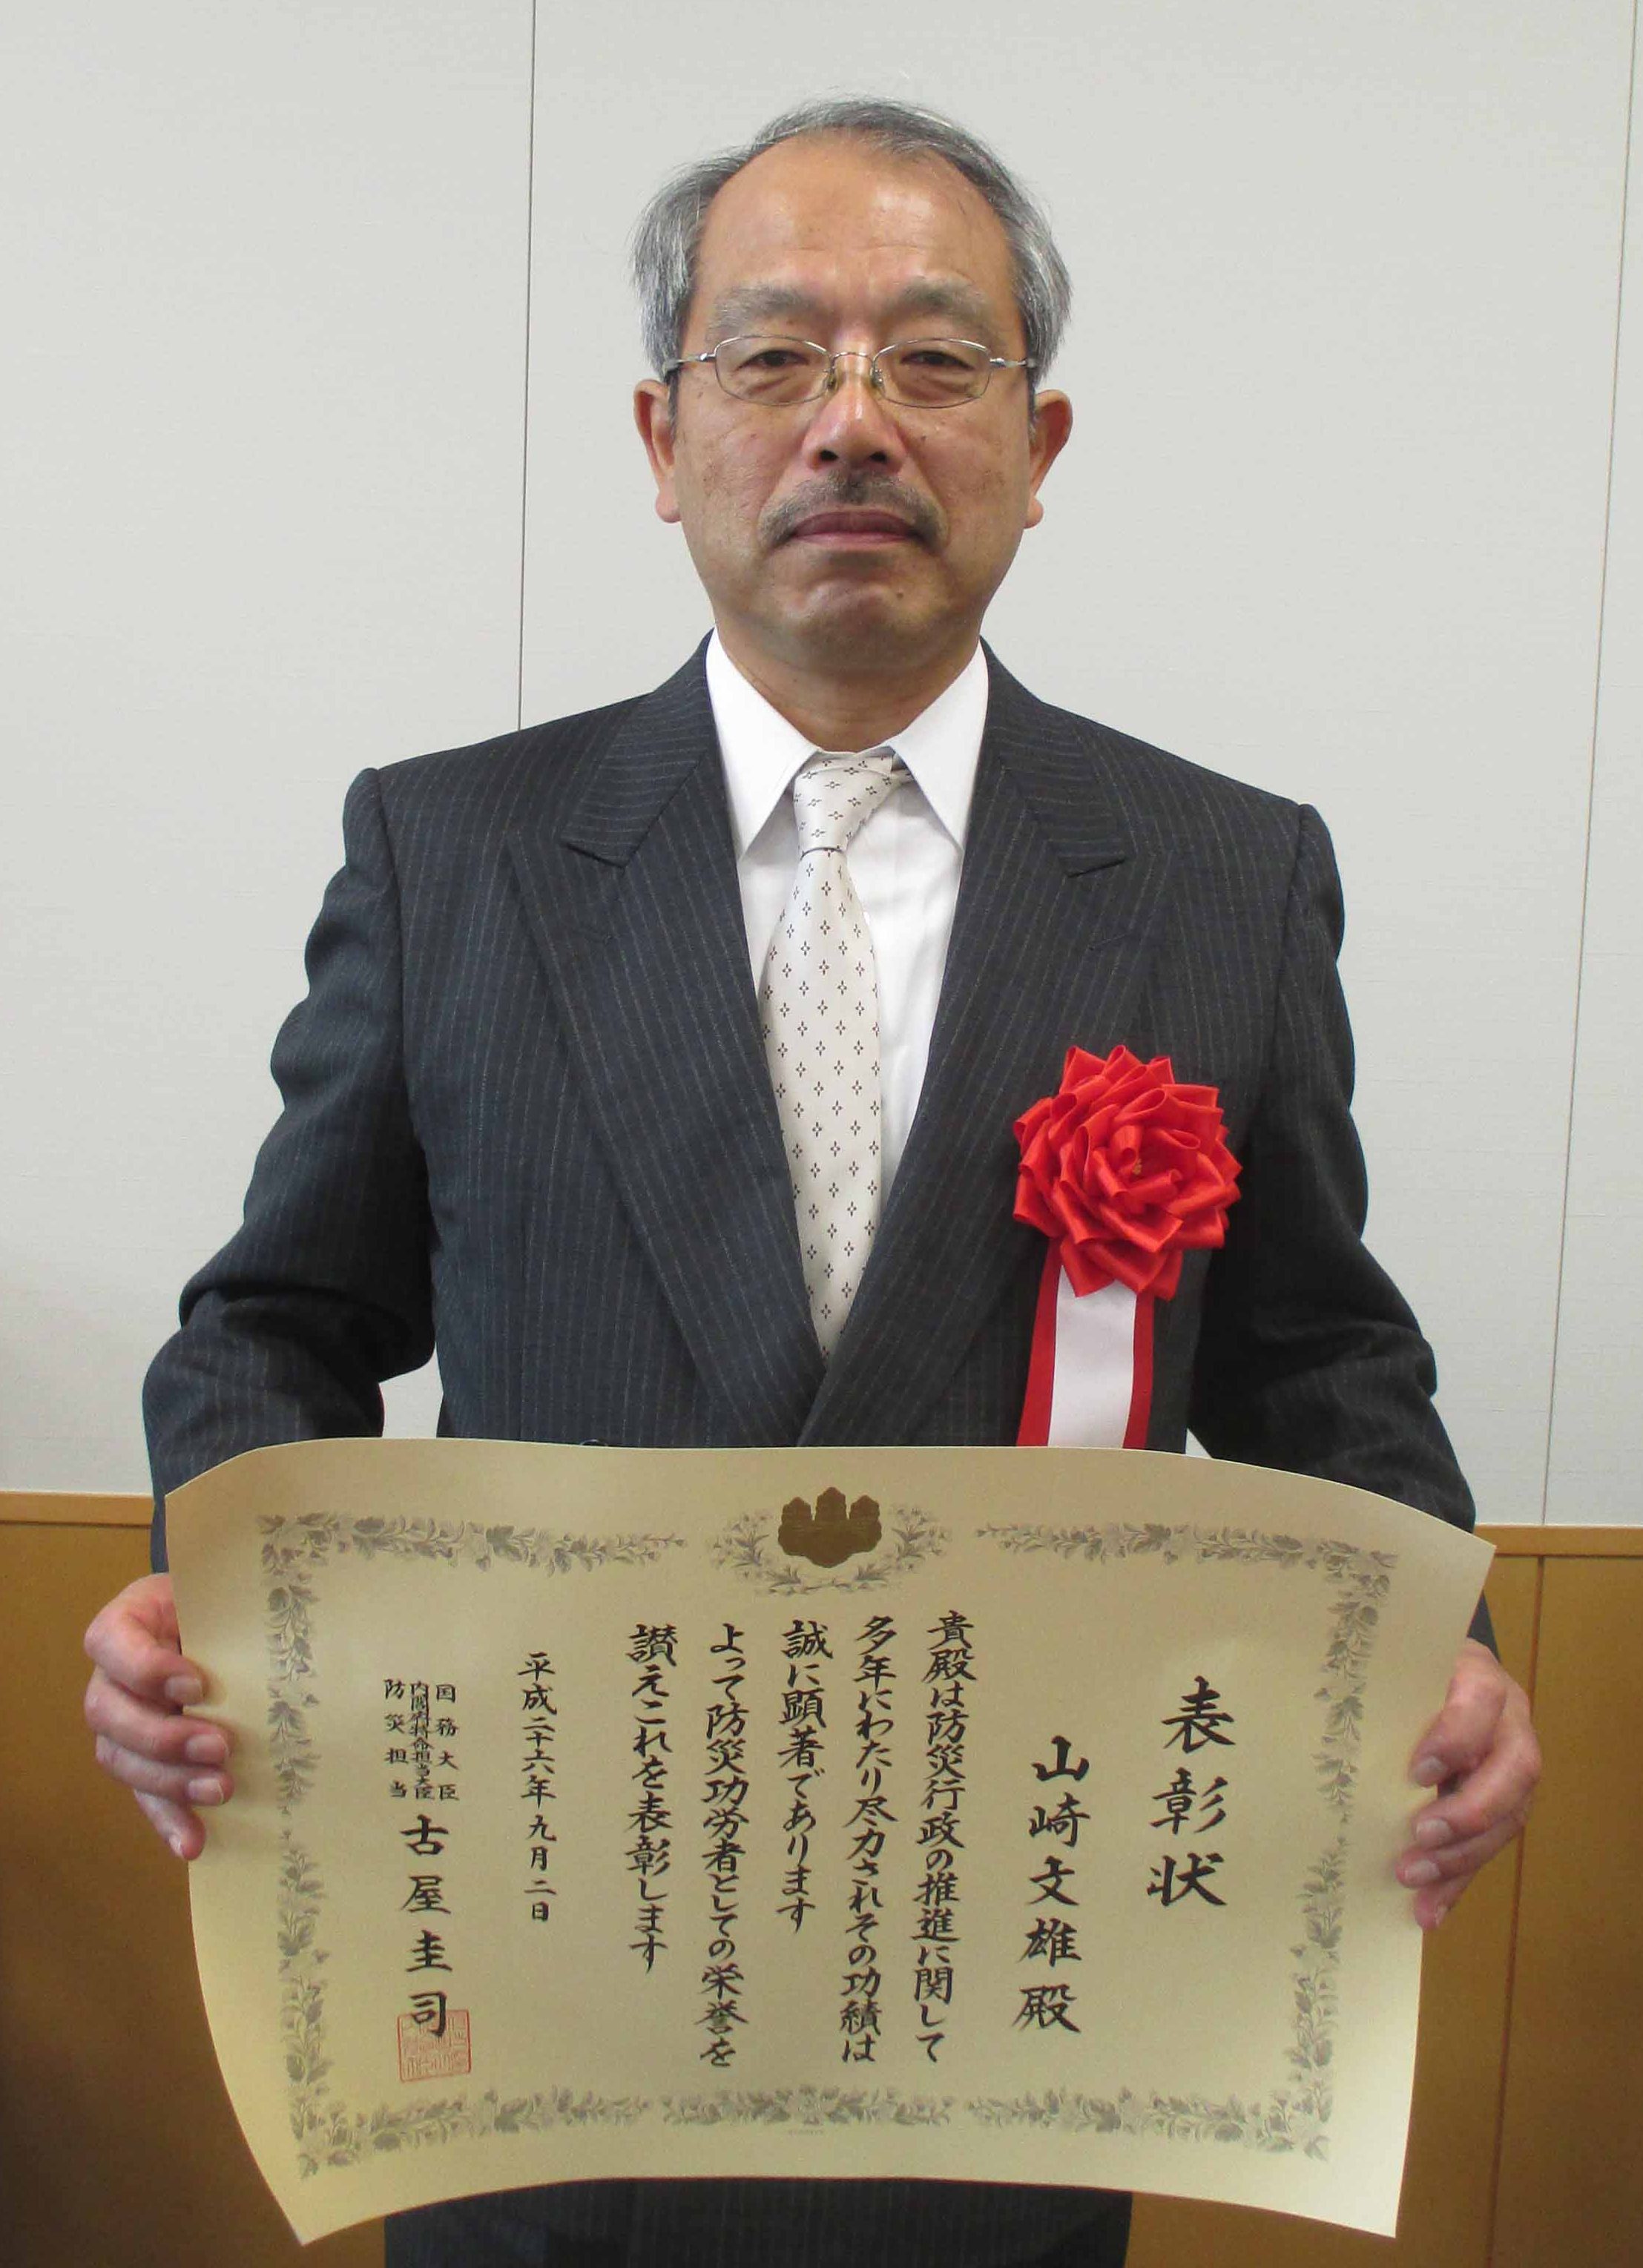 表彰状
山崎文雄殿
貴殿は防災行政の推進に関して
多年にわたり尽力されその功績は
誠に顕著であります
よって防災功労者としての栄誉を
讃えこれを表彰します
平成二十六年九月二日
国務大臣
内閣府特命担当大臣
防災担当
古屋圭司